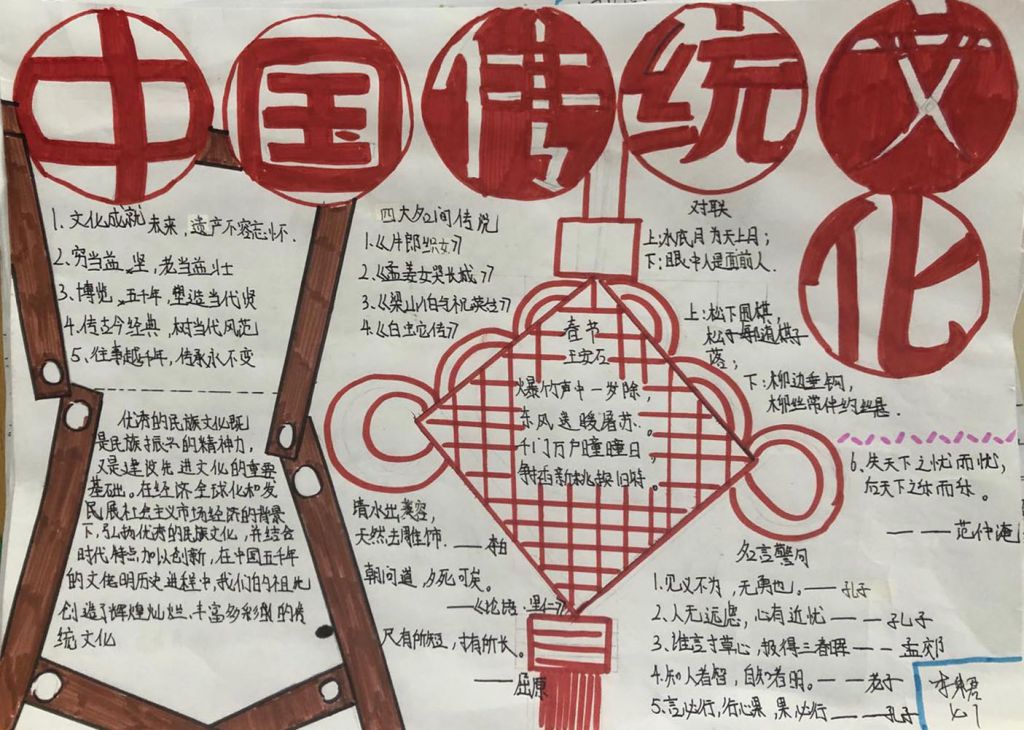 中国传统文化
1、文化成就未来,遗产不容忘怀.
2、穷当益坚,老当益壮
3、博览五千年,塑造当代贤
4、传古今经典,树当代风范
5、往事越千年,传承永不变
优秀的民族文化既
是民族振兴的精神力,
又是建设先进文化的重要
基础。在经济全球化和发
民展社会主义市场经济的背景
下,弘扬优秀的民族文化,并结合
时代特点加以创新,在中国五千年
的文化明历史进程中,我们的祖先
创造了辉煌灿烂、丰富多彩型的传
统文化
四大名间传说
1.《牛郎织女》
2.《孟姜女哭长城》
3.《梁山伯与祝英台》
4.《白蛇传》
对联
上:水底月为天上月;
下:眼中人是面前人.
上:松下围棋,
松子每随棋子
落;
下:柳边垂钩,
柳丝常伴约丝悬.
春节
王安石
爆竹声中一岁除,
东风送暖屠苏.。
千门万户曈曈日,
新桃换旧符。
清水出芙蓉,
天然去雕饰. ——李白
朝问道,夕死可矣
——《论语.里仁》
尺有所短,寸有所长。
——屈原
6.先天下之忧而忧,
后天下之乐而乐。
——范仲淹
名言警句
1.见义不为,无勇也。——孔子
2.人无远虑,必有近忧——孔子
3.谁言寸草心,报得三春晖——孟郊
4.知人者智,自知者明。——老子
5.言必行,行必果,果必行——孔子